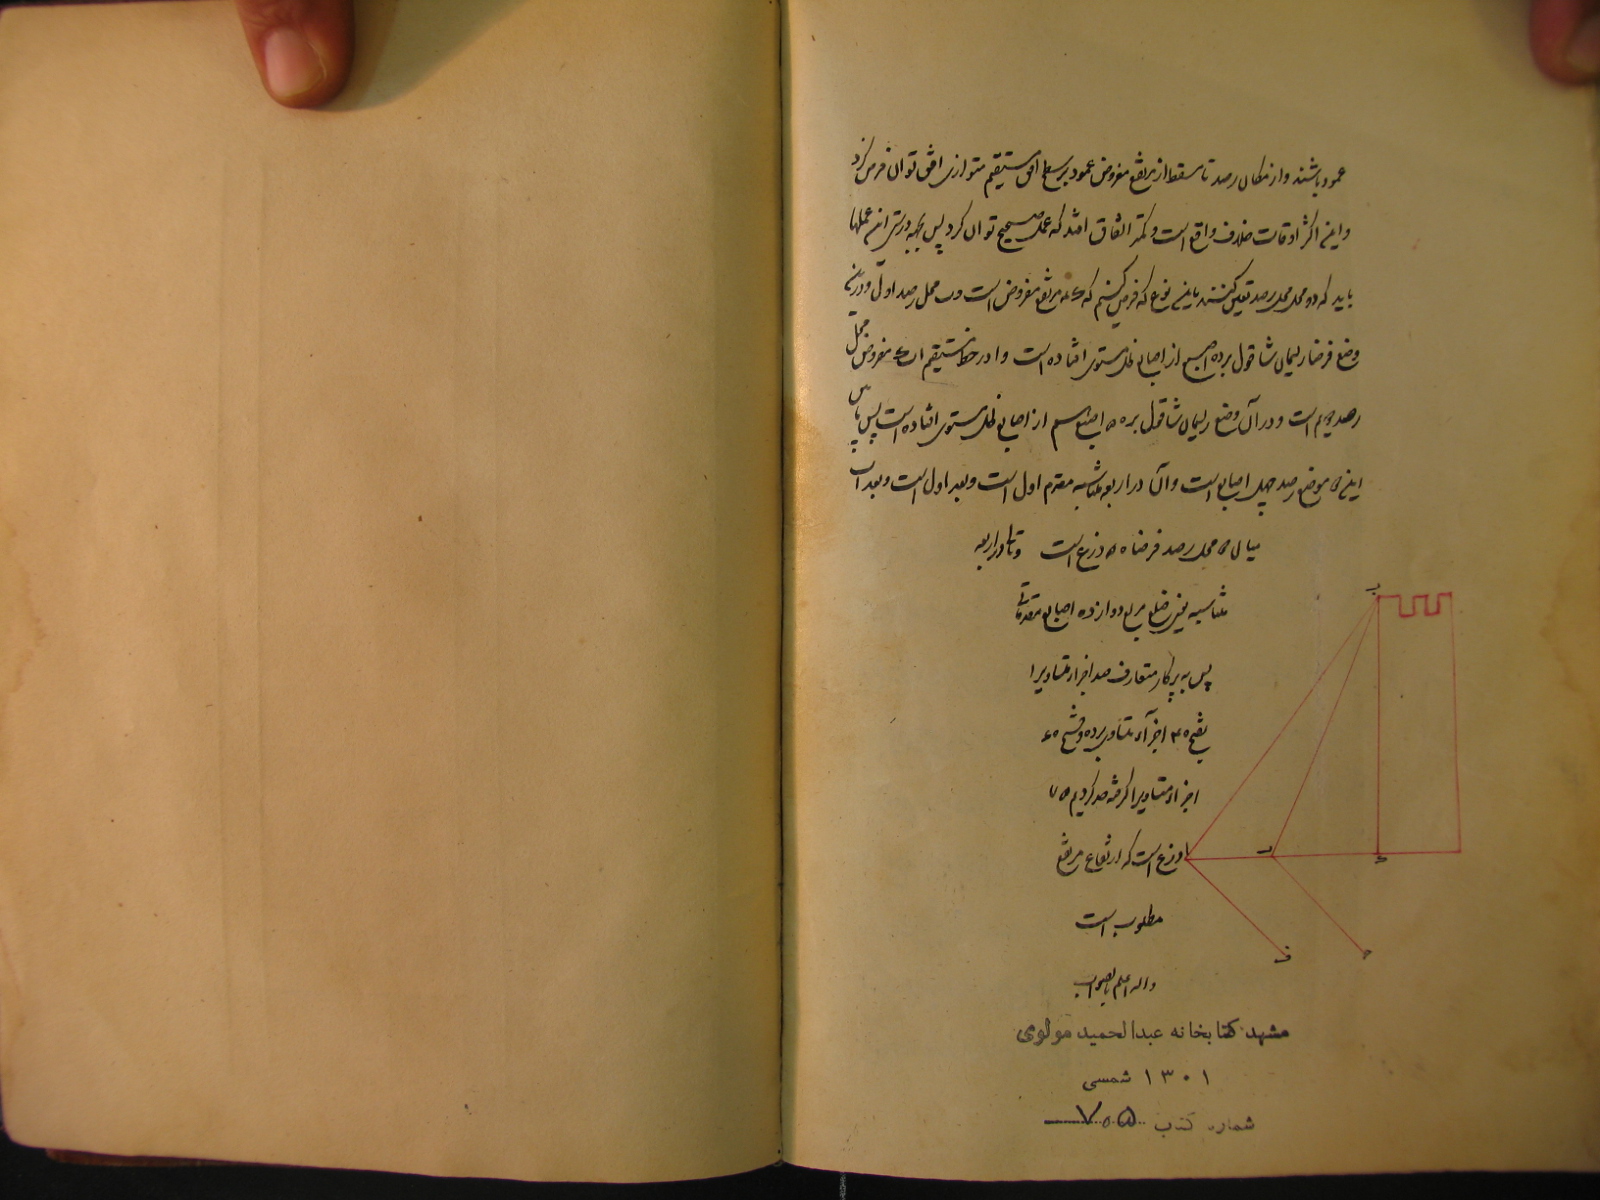 عمود باشند و از مکان رصد تا مسقط از مرتفع مفروض عمود بر سطح افق مستقیم متوازی افق توان فرض کرد
و این اکثر اوقات خلاف واقع است و کمتر اتفاق افتد که عمل صحیح توان کرد پس بجهه درستی این عملها
باید که دو محل رصد تعیین کنند باین نوع که فرض کنیم که مرتفع مفروض است و ب محل رصد اول و درین
وضع فرضا ریسمان شاقول بر ده اصبع از اصابع ظل مستوی افتاده است و ا در خط مستقیم مفروض محل
رصد دویم است و در آن وضع ریسمان شاقول بر اصبع از اصابع ظل مستوی افتاده است پس
این موضع رصد چهل اصابع است و آن در اربعه متناسبه مقدم اول است و بعد اول است و بعد
میان محل رصد فرضا ذرع است و تالی در اربعه
متناسبه یعنی ضلع مربع دوازده اصابع
پس به پرکار متعارف صد اجزاء متساویرا
بفتح ۴۰ اجزآء متساوی برده و فتح ۶۰
اجزاء متساویرا گرفته صد کردیم ۷۵
ذرع است که ارتفاع مرتفع
مطلوب است
والله اعلم بالصواب
مشهد کتابخانه عبدالحمید مولوی
۱۳۰۱ شمسی
شماره کتاب ۷۰۵
ب
ا
د